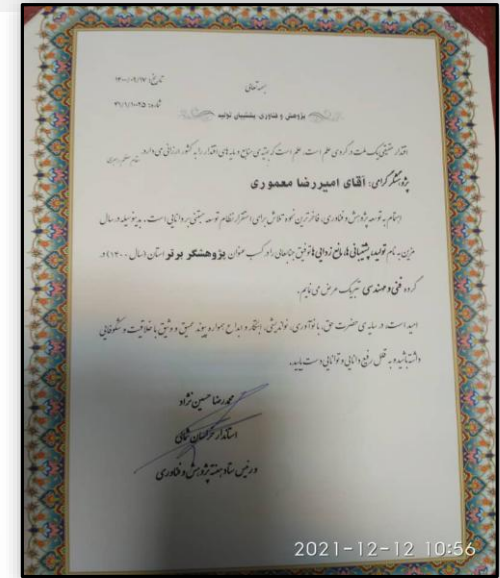 بسمه تعالی
تاریخ: ۱۴۰۰/۰۹/۱۷
شماره: ۴۱/۱/۱۰۲۵
پژوهش و فناوری، پشتیبان تولید
اقتدار حقیقی یک ملت در گروی علم است. علم است که بنیه‌ی منابع و مایه‌های اقتدار را به کشور ارزانی می‌دارد.
پژوهشگر گرامی: آقای امیررضا معموری
اهتمام به توسعه پژوهش و فناوری، فاخرترین نحوه تلاش برای استقرار نظام توسعه مبتنی بر دانایی است. بدینوسیله در سال
مزین به نام تولید؛ پشتیبانی‌ها، مانع زدایی‌ها توفیق جنابعالی را در کسب عنوان پژوهشگر برتر استان (سال ۱۴۰۰) در
گروه فنی و مهندسی تبریک عرض می‌نمایم.
امید است، در سایه‌ی حضرت حق، با نوآوری، نواندیشی، ابتکار و ابداع همواره پیوند عمیق و وثیق با خلاقیت و شکوفایی
داشته باشید و به قلل رفیع دانایی و توانایی دست یابید.
محمدرضا حسین نژاد
استاندار خراسان شمالی
و رئیس ستاد هفته پژوهش و فناوری
2021-12-12 10:56